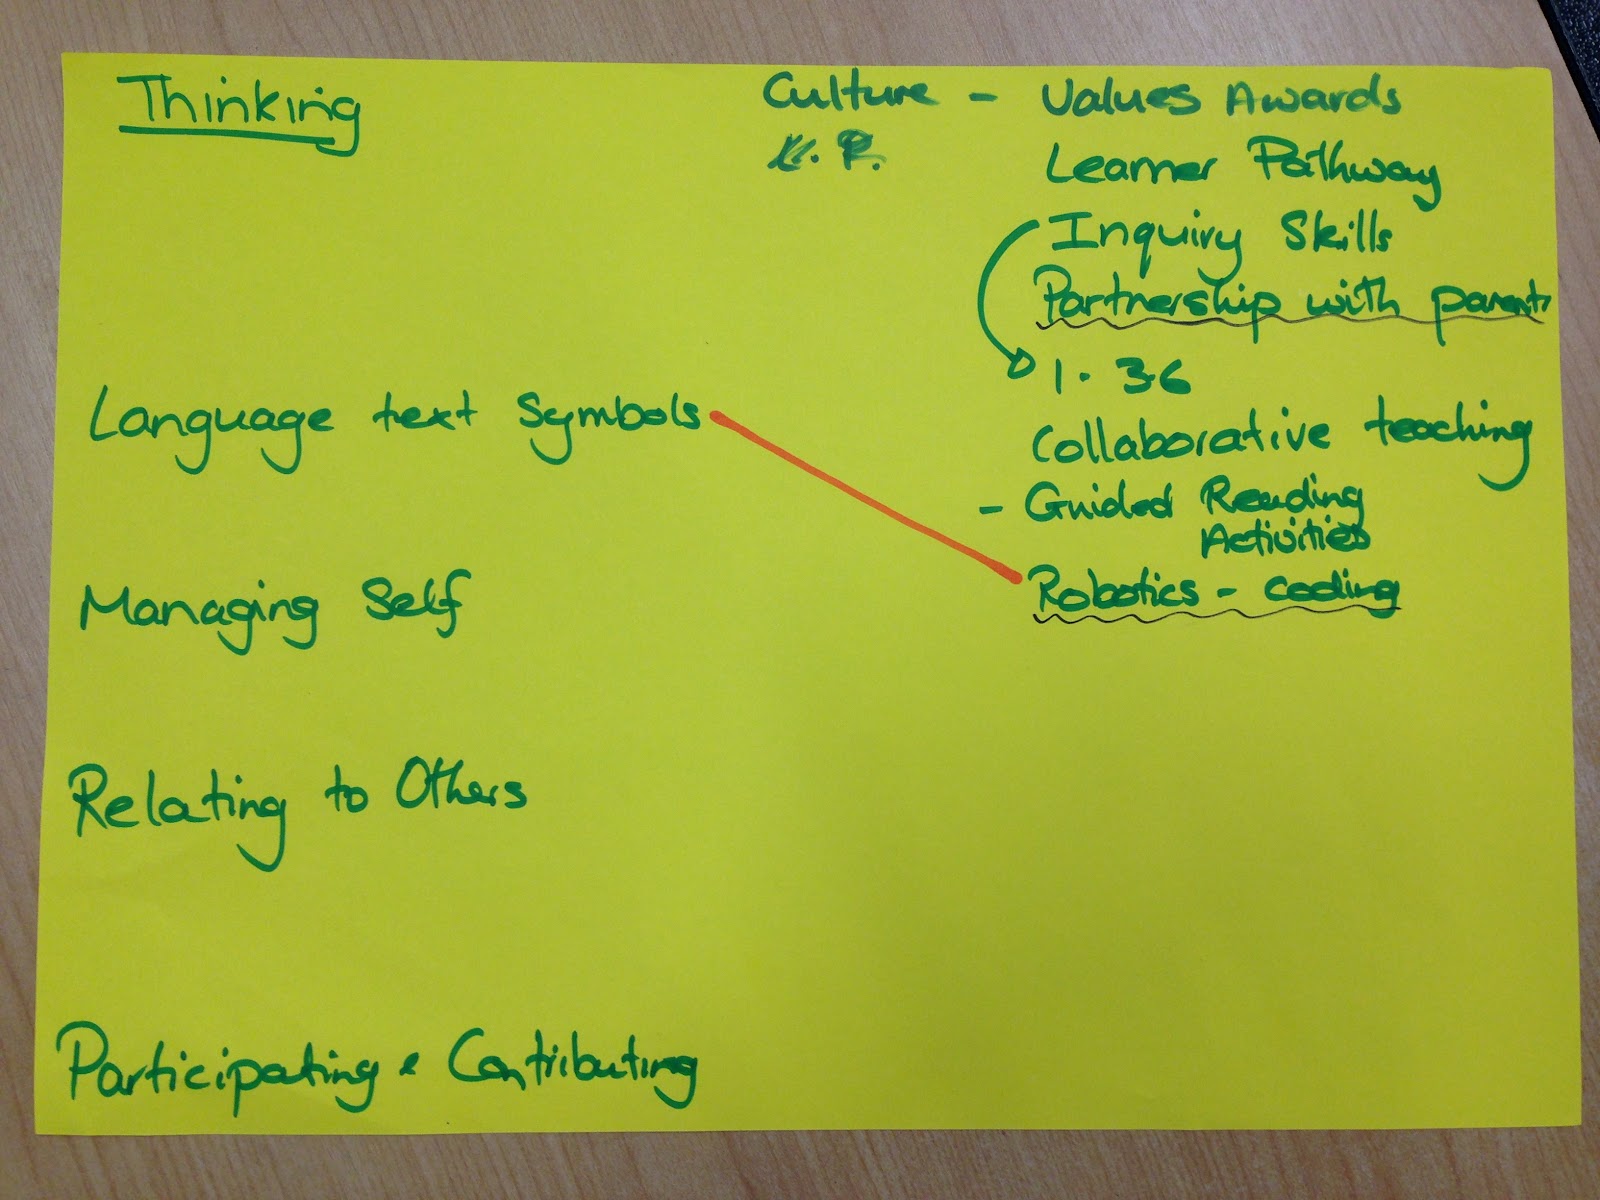 Thinking
Language text symbols
Managing Self
Relating to Others
Participating & Contributing
Culture - Values Awards
K. P.
Learner Pathway
Inquiry Skills
Partnership with parents
1. 3.6
Collaborative teaching
- Guided Reading
Activities
Robotics - coding